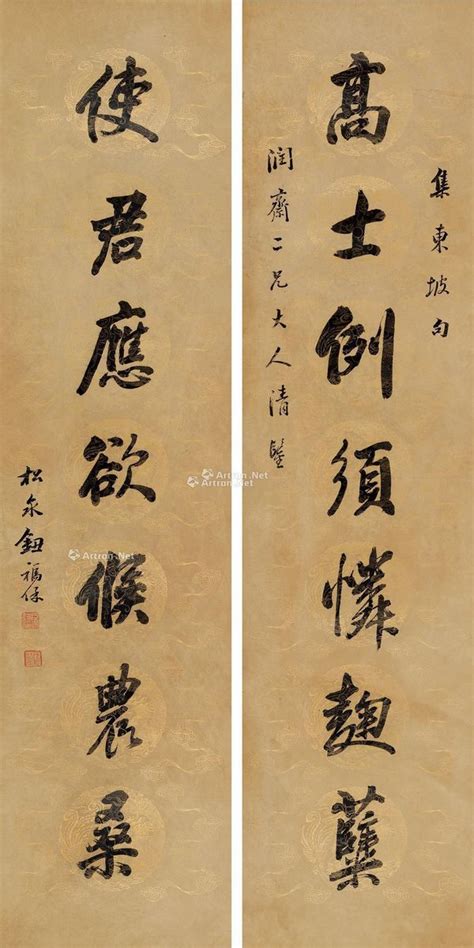 集東坡句
高士例須憐麴蘖
潤齋二兄大人清鑒
使君應欲候農桑
松泉鈕福保
Artron.Net
Artron.Net
Artron.Net
Artron.Net